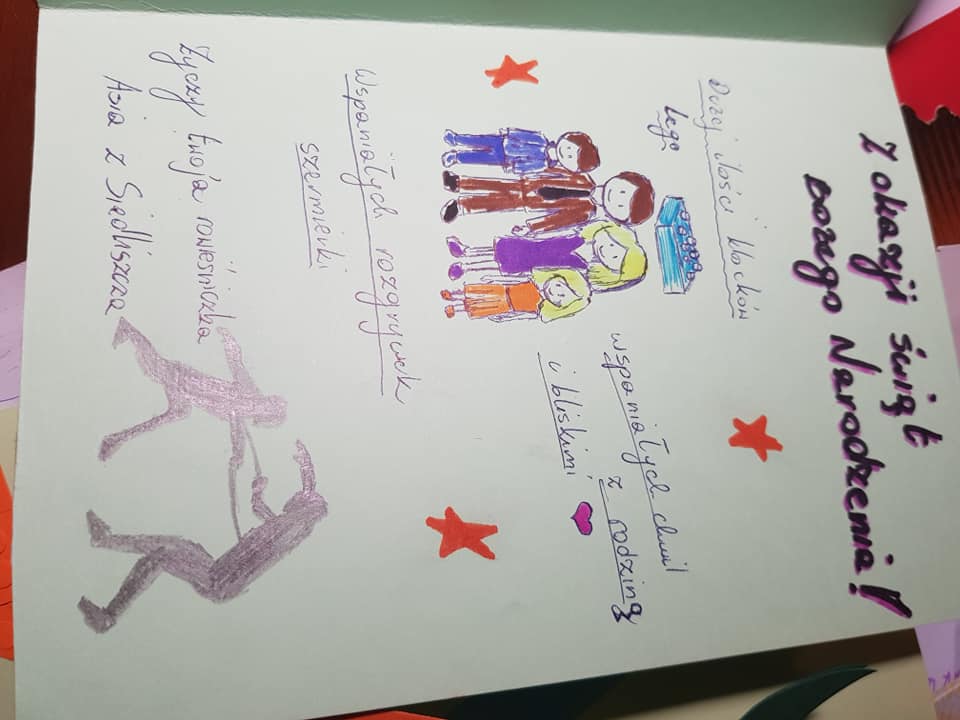 Z okazji świąt
Bożego Narodzenia!
Dużej ilości klocków
Lego
wspaniałych chwil
z rodziną
i bliskimi
Wspaniałych rozgrywek
szermierki
Życzy twoja rówieśniczka
Asia z Siedliszcza